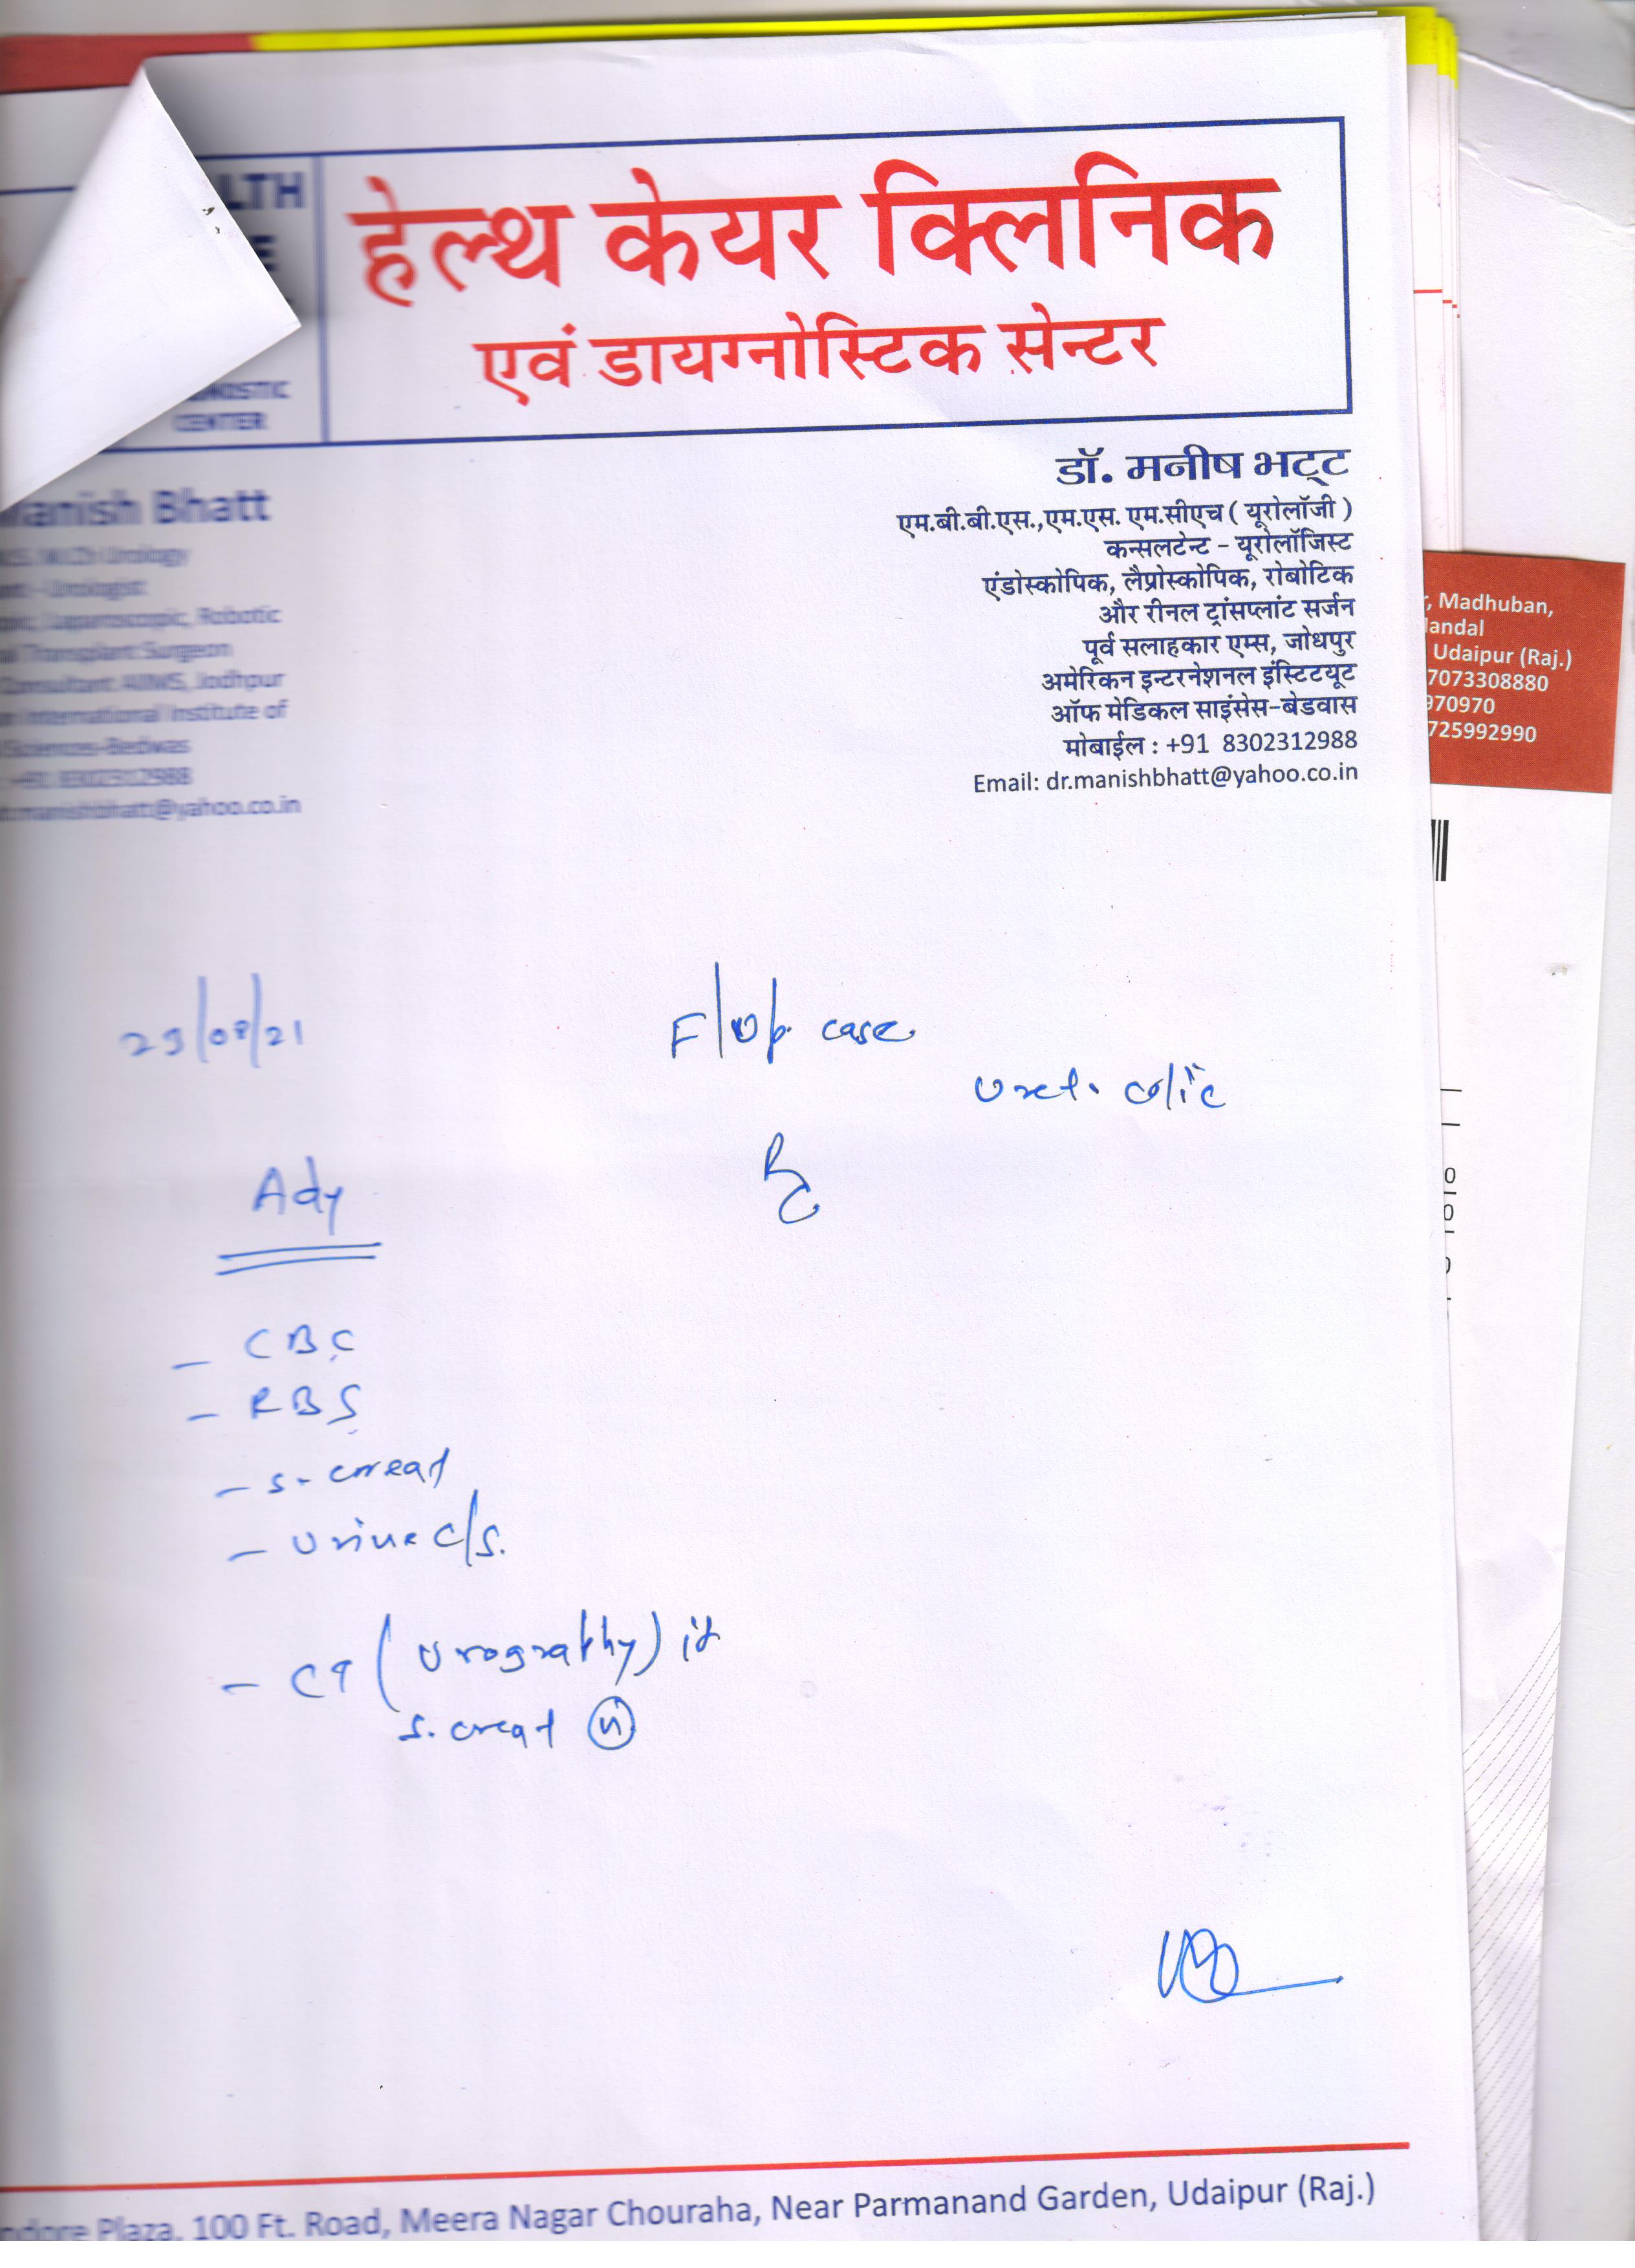 LTH
E
हेल्थ केयर क्लिनिक
एवं डायग्नोस्टिक सेन्टर
NOSTIC
CENTER
Manish Bhatt
M.Ch Urology
Urologist
Laparoscopic, Robotic
Transplant Surgeon
Consultant AIIMS, Jodhpur
International Institute of
Sciences-Bedwas
+91 8302312988
manishbhatt@yahoo.co.in
डॉ. मनीष भट्ट
एम.बी.बी.एस.,एम.एस. एम.सीएच ( यूरोलॉजी )
कन्सलटेन्ट - यूरोलॉजिस्ट
एंडोस्कोपिक, लैप्रोस्कोपिक, रोबोटिक
और रीनल ट्रांसप्लांट सर्जन
पूर्व सलाहकार एम्स, जोधपुर
अमेरिकन इन्टरनेशनल इंस्टिटयूट
ऑफ मेडिकल साइंसेस-बेडवास
मोबाईल : +91 8302312988
Email: dr.manishbhatt@yahoo.co.in
, Madhuban,
andal
Udaipur (Raj.)
7073308880
970970
725992990
23/08/21
F/Up case
Uret. colic
Adv
- CBC
- RBS
- S. creat
- Urine C/S.
- CT (Urography) if
S. creat (N)
100 Ft. Road, Meera Nagar Chouraha, Near Parmanand Garden, Udaipur (Raj.)